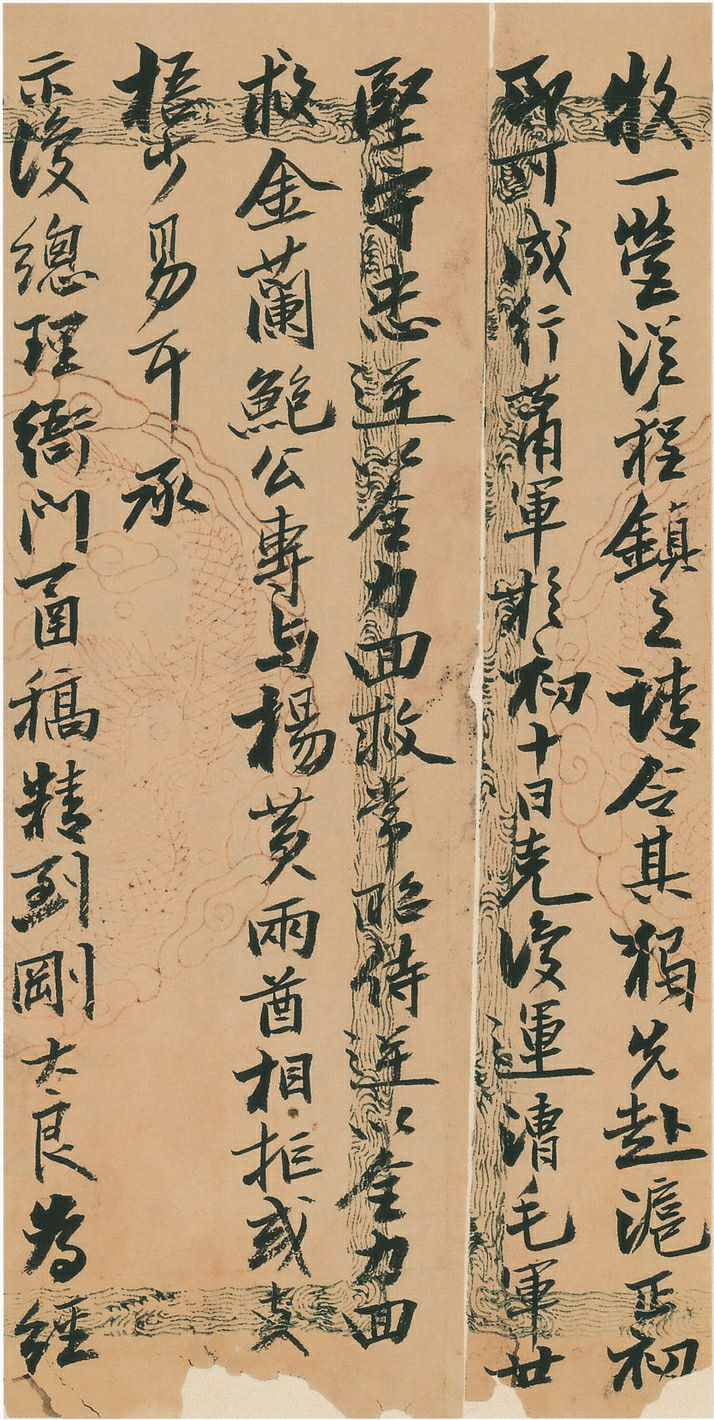 牧一營從程鎮之請令其獨先赴滬正初
即可成行蕭軍於初十日克復運漕毛軍廿
堅守忠逆以全力回救常昭侍逆以全力回
救金蘭鮑公專与楊黃兩酋相拒或支
梧少易耳承
示復總理衙門圅稿精到剛大良為經